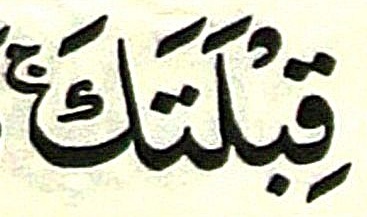 قِبْلَتَكَ ۚ